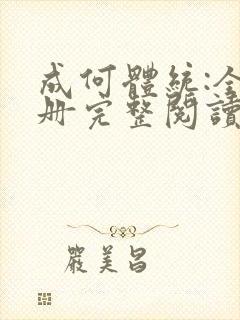 成何體統:全
冊完整閱讀
嚴美昌